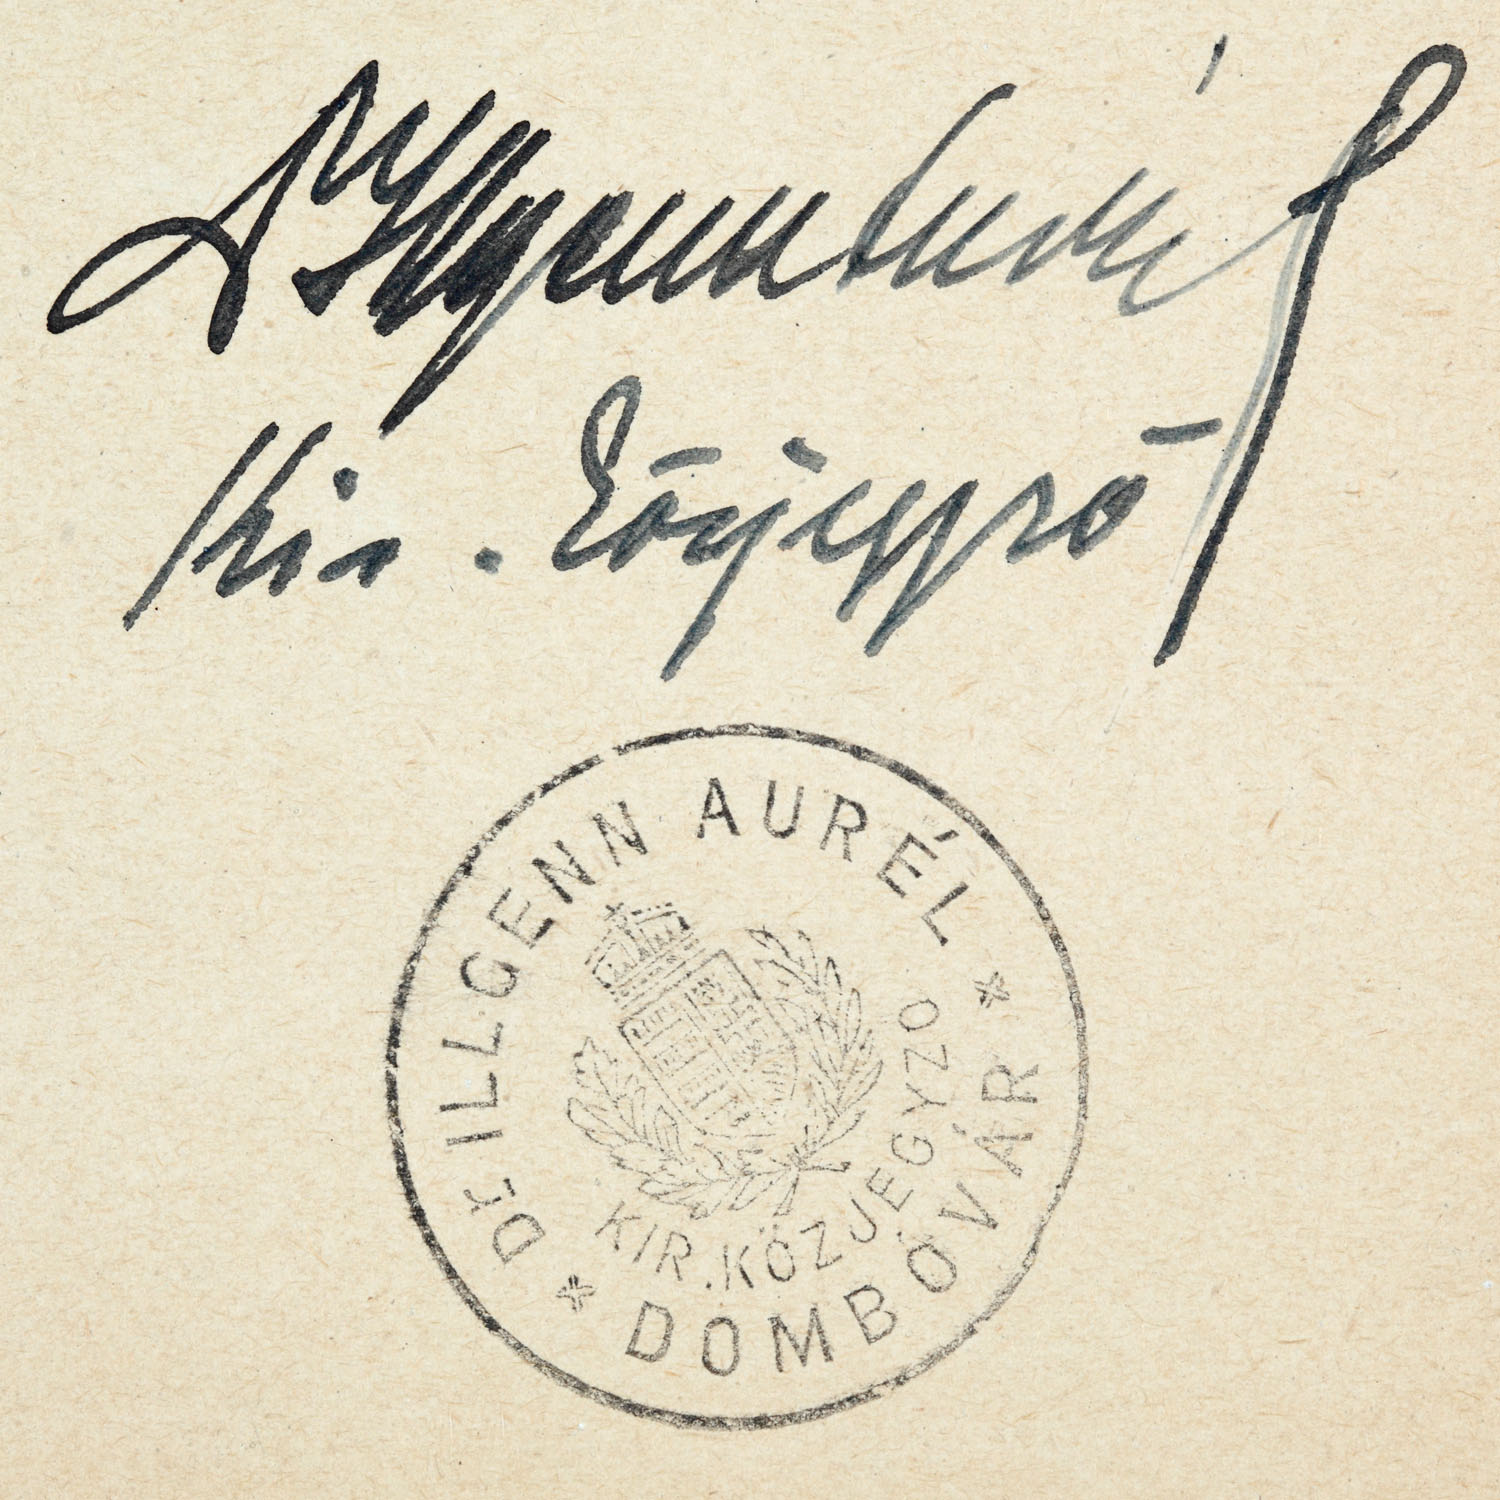 Dr Illgenn Aurél
kir. közjegyző
Dr. ILLGENN AURÉL
KIR. KÖZJEGYZŐ
DOMBÓVÁR